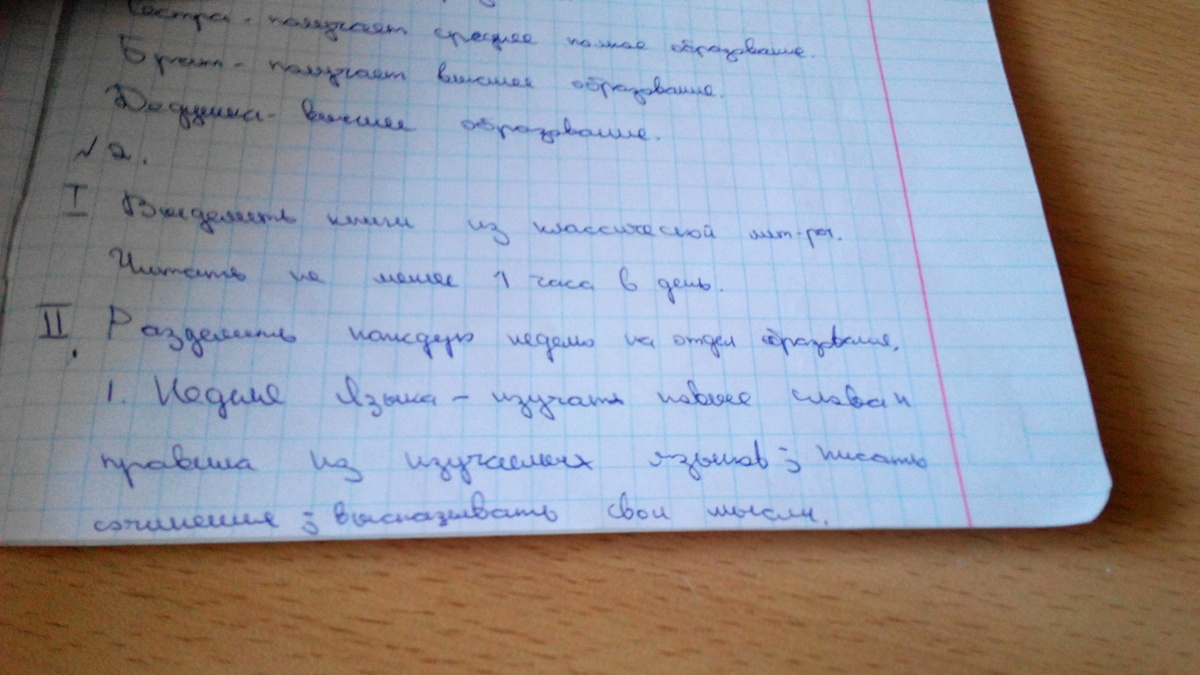 Сестра - получает среднее полное образование.
Брат - получает высшее образование.
Дедушка - высшее образование.
№2.
I Выделить книги из классической лит-ры.
Читать не менее 1 часа в день.
II. Разделить каждую неделю на отдел образования.
1. Неделя Языка - изучать новые слова и
правила из изучаемых языков; писать
сочинения; высказывать свои мысли.